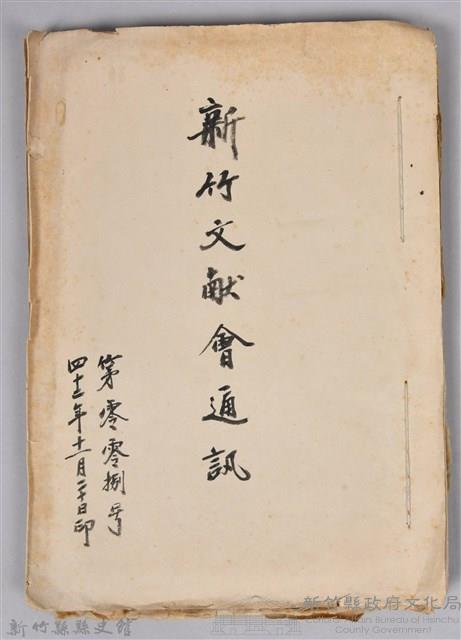 新竹文献會通訊
第零零捌号
四十二年十一月二十日印
新竹縣縣史館
新竹縣政府文化局
Bureau of Hsinchu
County Government